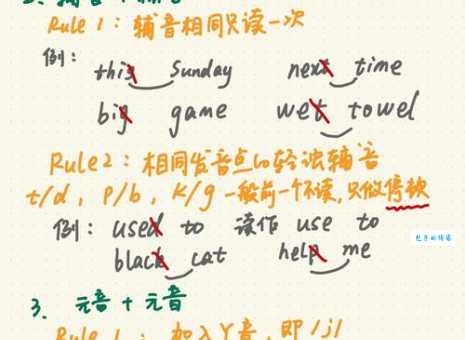 Rule 1：辅音相同只读一次
例：
this Sunday next time
big game wet towel
Rule 2：相同发音点的轻浊辅音
t/d，p/b，k/g 一般前一个不读，只做停顿
例：used to 读作 use to
black cat help me
3. 元音+元音
Rule 1：加入Y音，即/j/